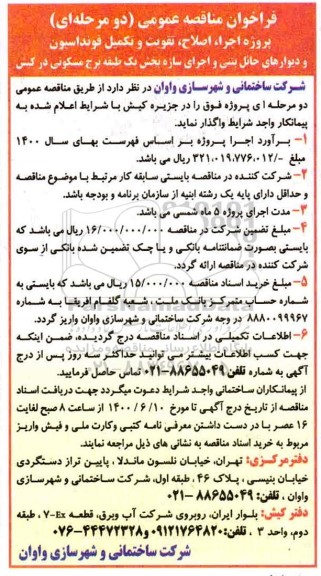 فراخوان مناقصه عمومی (دو مرحله‌ای)
پروژه اجراء، اصلاح، تقویت و تکمیل فونداسیون
و دیوارهای حائل بتنی و اجرای سازه بخش یک طبقه برج مسکونی در کیش
شرکت ساختمانی و شهرسازی واوان در نظر دارد از طریق مناقصه عمومی
دو مرحله ای پروژه فوق را در جزیره کیش با شرایط اعلام شده به
پیمانکار واجد شرایط واگذار نماید.
۱- برآورد اجرا پروژه بر اساس فهرست بهای سال ۱۴۰۰
مبلغ -/۳۲۱،۰۱۹،۷۷۶،۰۱۲ ریال می باشد.
۲- شرکت کننده در مناقصه بایستی سابقه کار مرتبط با موضوع مناقصه
و حداقل دارای پایه یک رشته ابنیه از سازمان برنامه و بودجه باشد.
۳- مدت اجرای پروژه ۵ ماه شمسی می باشد.
۴- مبلغ تضمین شرکت در مناقصه ۱۶/۰۰۰/۰۰۰/۰۰۰ ریال می باشد که
بایستی بصورت ضمانتنامه بانکی و یا چک تضمین شده بانکی از سوی
شرکت کننده در مناقصه ارائه گردد.
۵- مبلغ خرید اسناد مناقصه ۱۵/۰۰۰/۰۰۰ ریال می باشد که بایستی به
شماره حساب متمرکز بانک ملت، شعبه گلفام افریقا به شماره
۸۸۸۰۰۹۹۹۶۷ در وجه شرکت ساختمانی و شهرسازی واوان واریز گردد.
۶- اطلاعات تکمیلی در اسناد مناقصه درج گردیده، ضمن اینکه
جهت کسب اطلاعات بیشتر می توانید حداکثر سه روز پس از درج
آگهی به شماره تلفن ۸۸۶۵۵۰۴۹-۰۲۱ تماس حاصل فرمایید.
از پیمانکاران ساختمانی واجد شرایط دعوت میگردد جهت دریافت اسناد
مناقصه از تاریخ درج آگهی تا مورخ ۱۴۰۰/۶/۱۰ از ساعت ۸ صبح لغایت
۱۶ عصر با در دست داشتن معرفی نامه کتبی وکارت ملی و فیش واریز
مربوط به خرید اسناد مناقصه به نشانی های ذیل مراجعه نمایند.
دفترمرکزی: تهران، خیابان نلسون ماندلا، پایین تراز دستگردی
خیابان بنیسی، پلاک ۴۶، طبقه اول، شرکت ساختمانی و شهرسازی
واوان، تلفن: ۸۸۶۵۵۰۴۹-۰۲۱
دفتر کیش: بلوار ایران، روبروی شرکت آب وبرق، قطعه Ex-۷، طبقه
دوم، واحد ۳، تلفن: ۰۹۱۲۱۷۶۴۸۲۰ و ۴۴۴۷۲۳۲۸-۰۷۶
شرکت ساختمانی و شهرسازی واوان